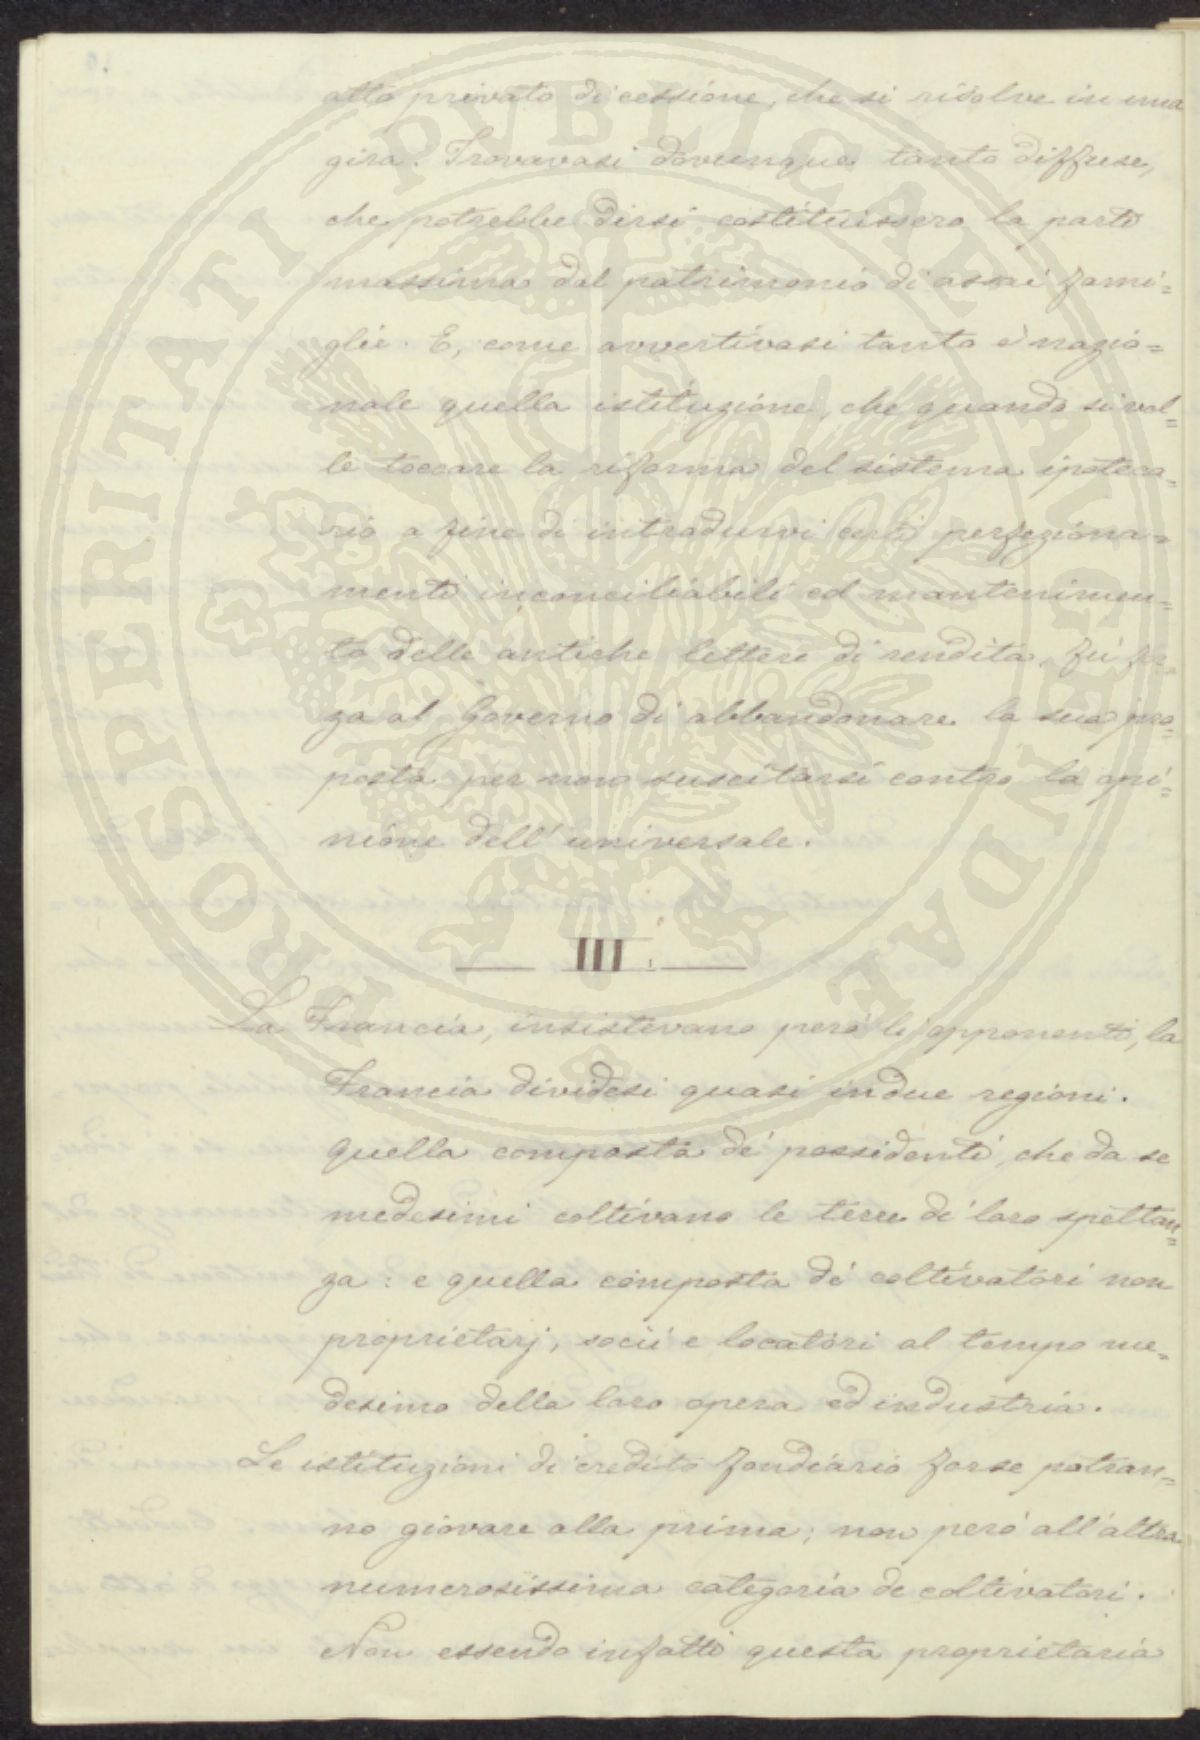 atto privato di cessione, che si risolve in una
gira. Trovavasi dovunque tanto diffuse,
che potrebbe dirsi costituissero la parte
massima del patrimonio di assai fami=
glie. E, come avvertivasi tanto è nazio=
nale quella istituzione, che quando si vol=
le toccare la riforma del sistema ipoteca=
rio a fine di introdurvi certi perfeziona=
menti inconciliabili col mantenimen=
to delle antiche lettere di rendita, fu for=
za al Governo di abbandonare la sua pro=
posta per non suscitarsi contro la opi=
nione dell'universale.
III.
La Francia, insistevano però li opponenti, la
Francia dividesi quasi in due regioni.
Quella composta de' possidenti, che da se
medesimi coltivano le terre di loro spettan=
za: e quella composta de' coltivatori non
proprietarj, socii e locatori al tempo me=
desimo della loro opera ed industria.
Le istituzioni di credito fondiario forse potran=
no giovare alla prima; non però all'altra
numerosissima categoria de coltivatori.
Non essendo infatti questa proprietaria
PROSPERITATI PVBLICAE AVGENDAE